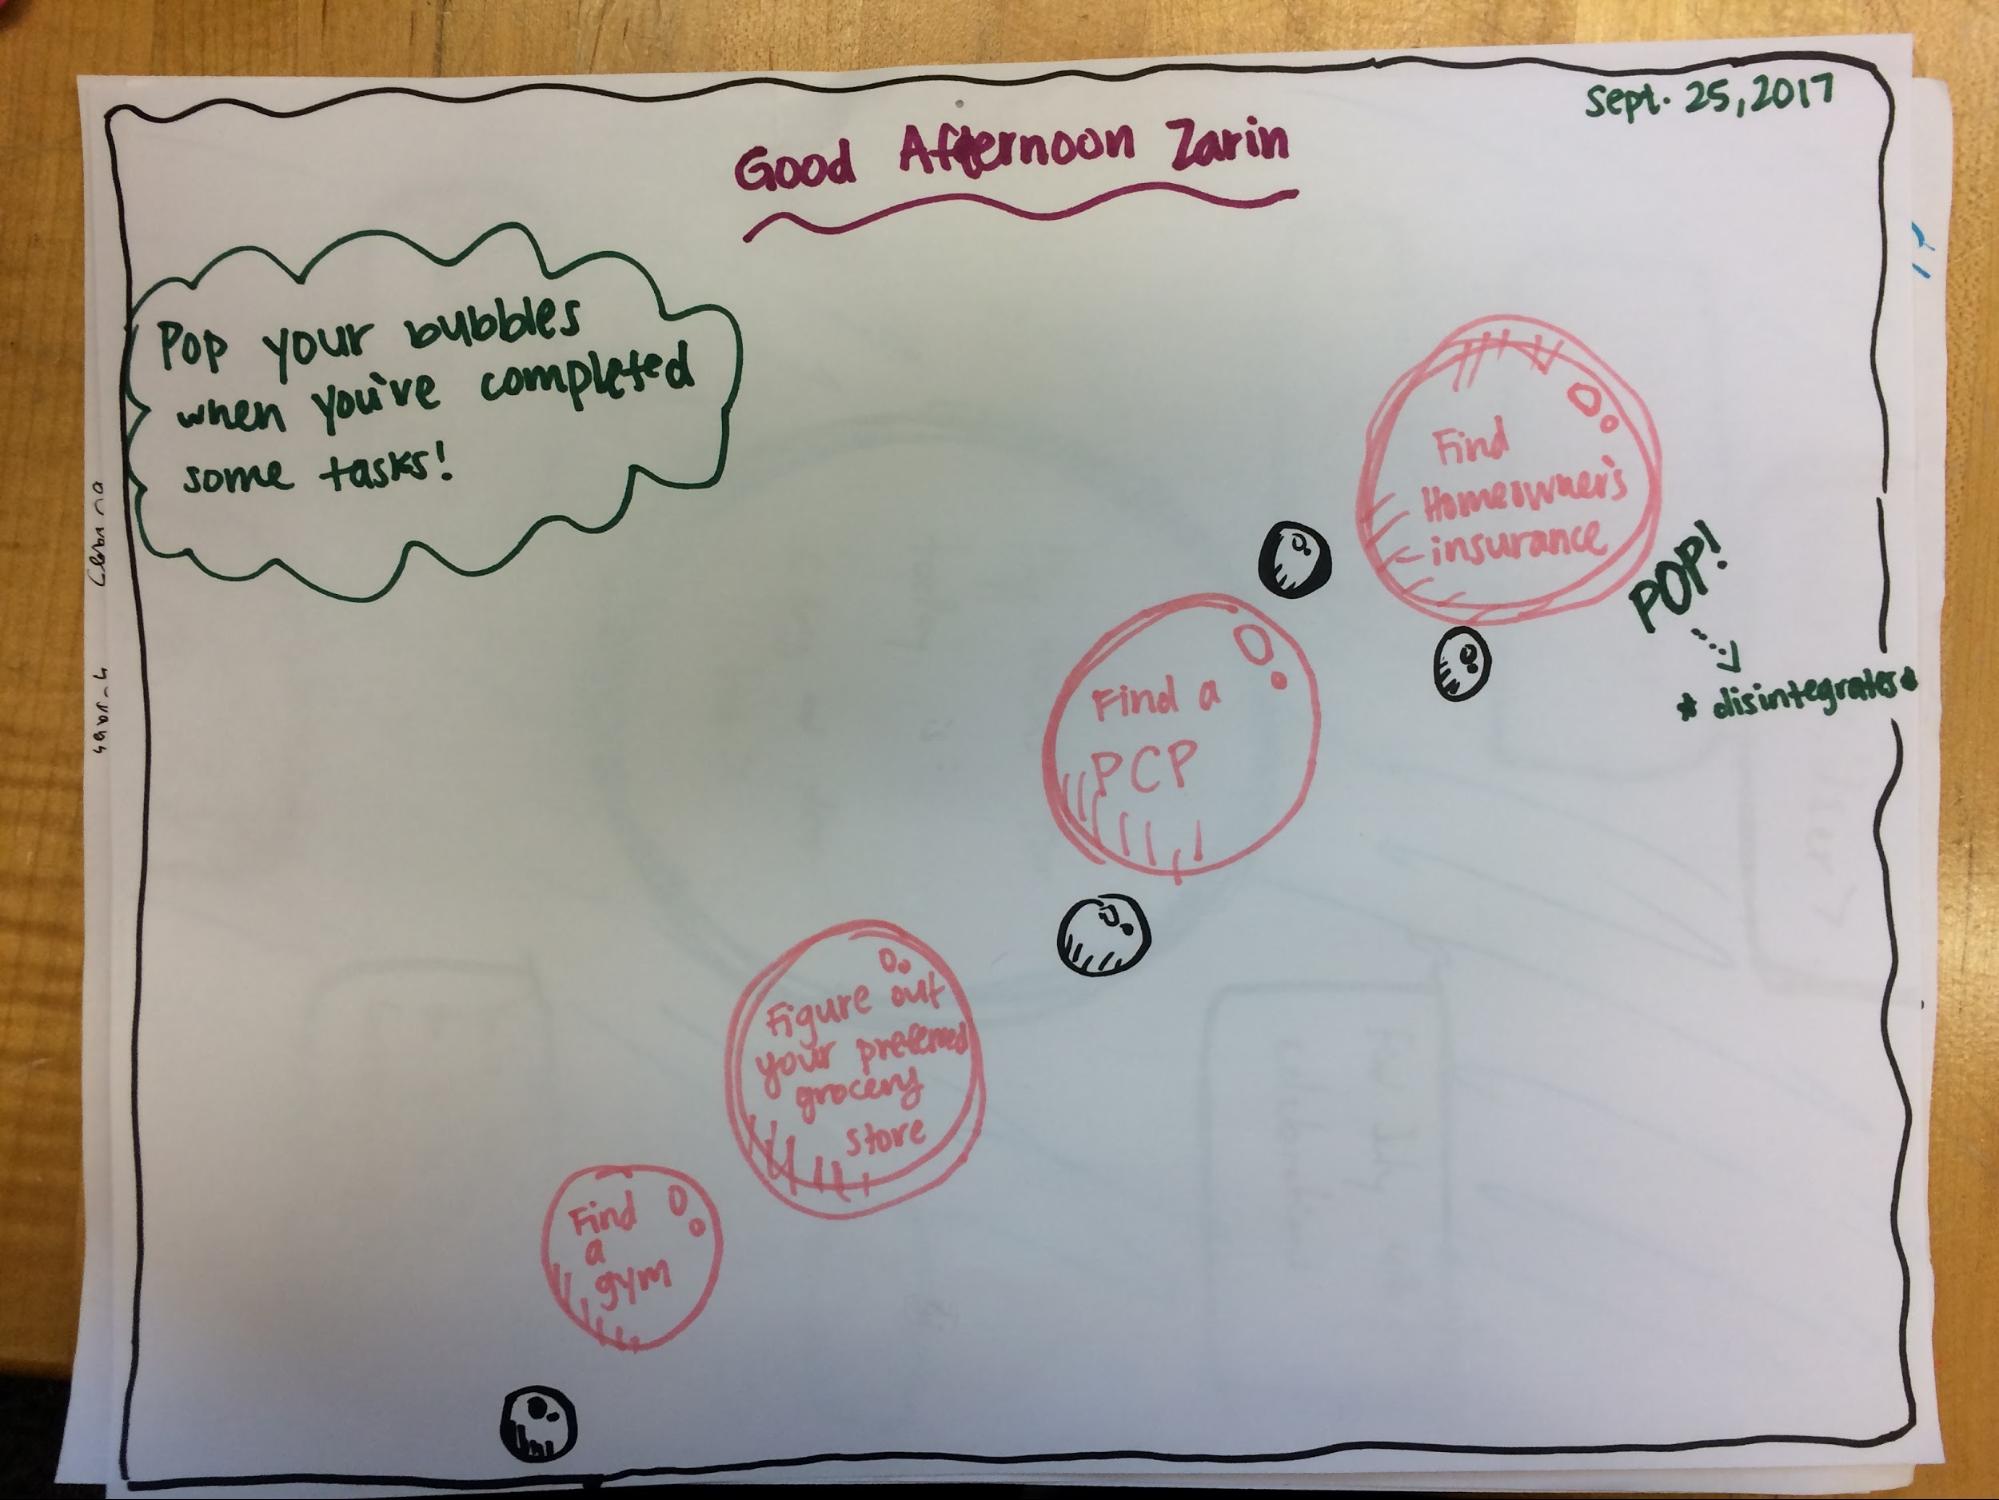 Sept. 25, 2017
Good Afternoon Zarin
Pop your bubbles
when you've completed
some tasks!
Find
Homeowner's
insurance
POP!
* disintegrates *
Find a
PCP
Figure out
your preferred
grocery
store
Find
a
gym